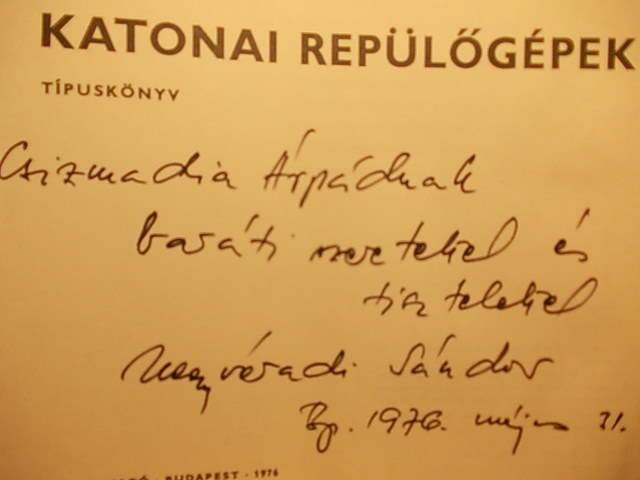 KATONAI REPÜLŐGÉPEK
TÍPUSKÖNYV
Csizmadia Árpádnak
baráti szeretettel és
tisztelettel
Nagyváradi Sándor
Bp. 1976. május 31.
BUDAPEST · 1976